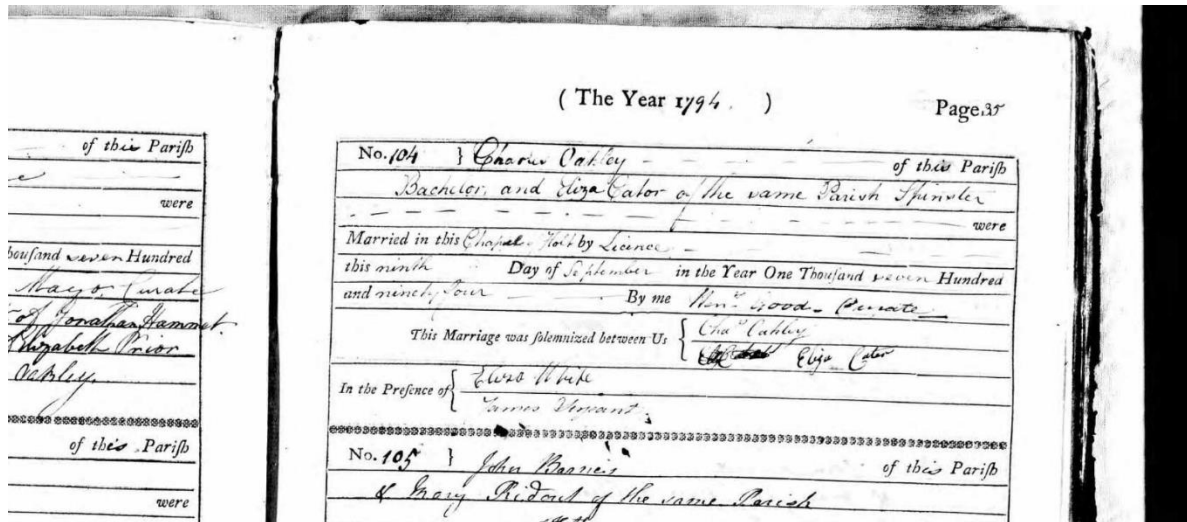 of this Parish
were
thousand seven Hundred
Mayo Curate
of Jonathan Hammet
Elizabeth Prior
Oakley
of this Parish
were
( The Year 1794. )
Page 35
No. 104 } Charles Oakley of this Parish
Bachelor, and Eliza Cator of the same Parish Spinster
were
Married in this Chapel Holt by Licence
this ninth Day of September in the Year One Thousand seven Hundred
and ninety four By me Henry Good Curate
This Marriage was solemnized between Us { Chas Oakley
Eliza Cator
In the Presence of { Eliza White
James
No. 105 } John of this Parish
& Mary Ridout of the same Parish